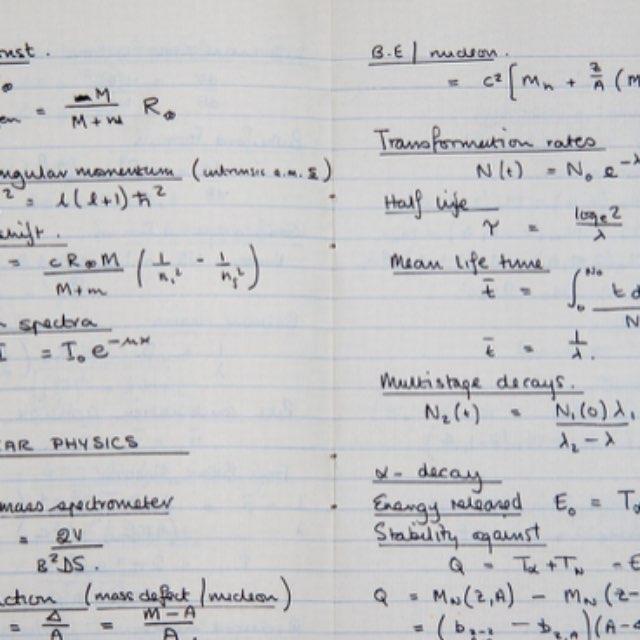 onst.
= M / M+m R∞
ngular momentum (intrinsic e.m. s)
² = l(l+1)ħ²
hift.
= cR∞M / M+m (1/n₁² - 1/n₂²)
spectra
= I₀e^-μx
AR PHYSICS
mass spectrometer
= 2V / B²DS.
ction (mass defect / nucleon)
= Δ / A = M-A / A
B.E / nucleon.
= c²[Mₙ + Z/A (M
Transformation rates
N(t) = N₀ e^-λ
Half life
τ = logₑ2 / λ
Mean life time
t̄ = ∫₀^N₀ t d / N
t̄ = 1/λ.
Multistage decays.
N₂(t) = N₁(0)λ₁ / λ₂-λ
α-decay
Energy released E₀ = Tα
Stability against
Q = Tα + T_N = E
Q = M_N(Z,A) - M_N(Z-
= (b_Z,A - b_Z-2)(A-